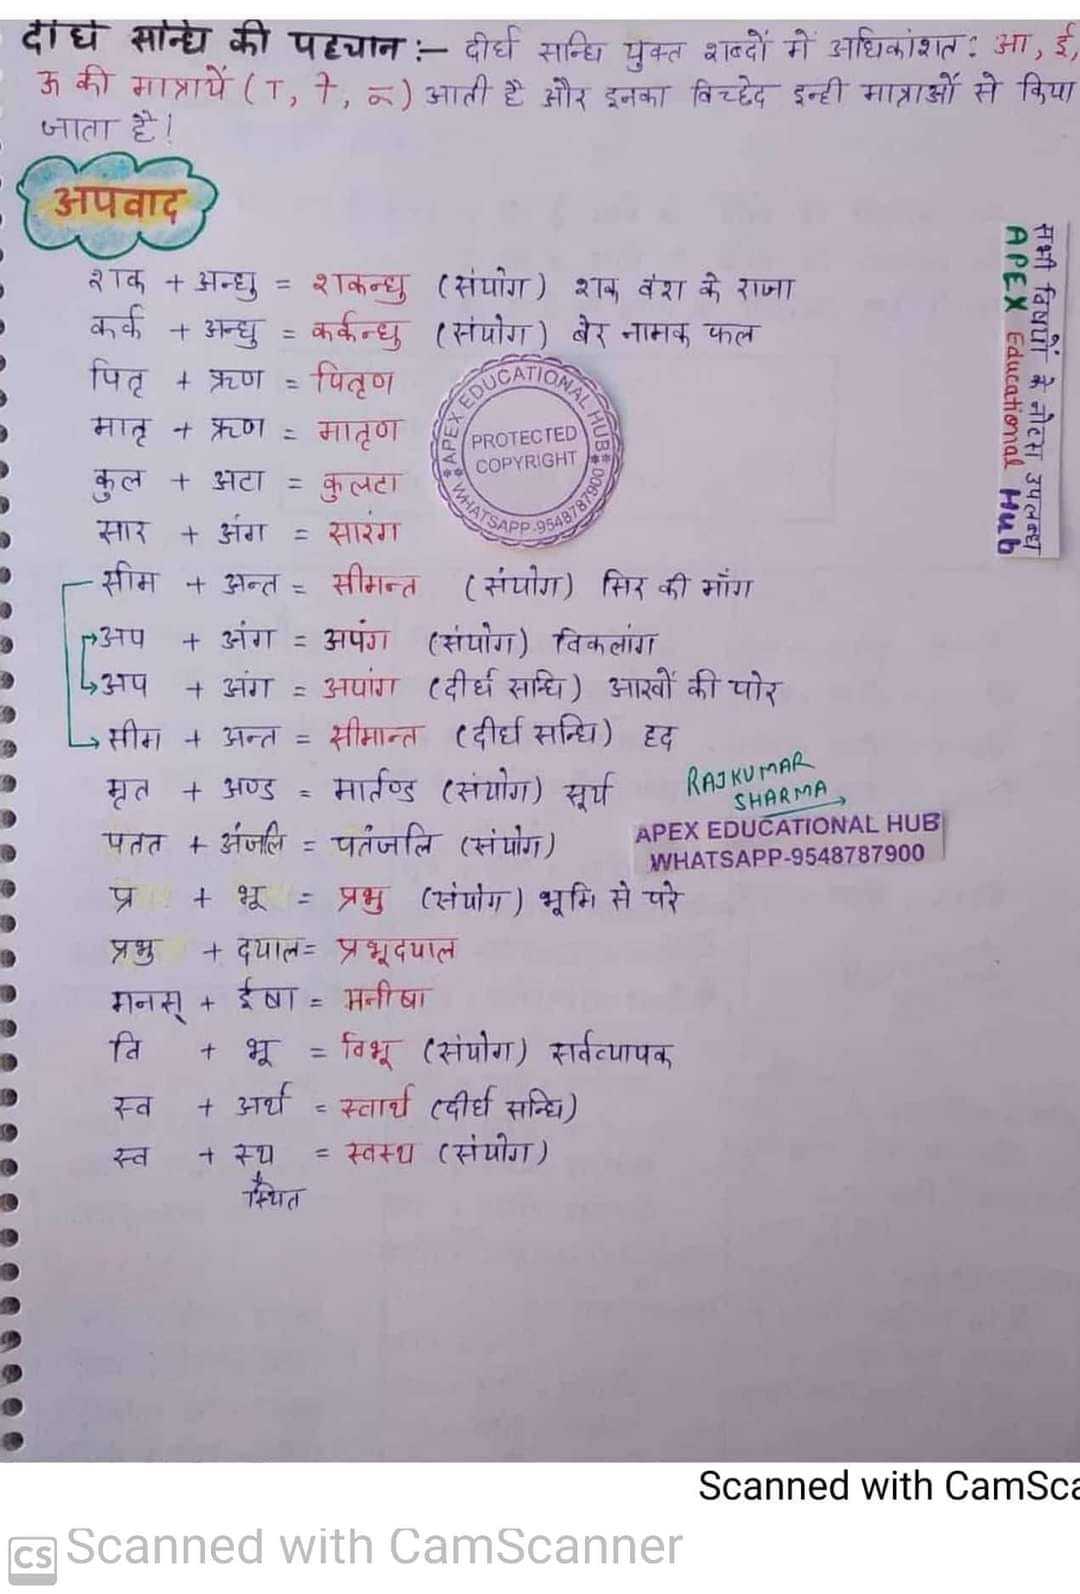 दीर्घ सन्धि की पहचान :- दीर्घ सन्धि युक्त शब्दों में अधिकांशत: आ, ई,
ऊ की मात्रायें ( ा, ी, ू ) आती है और इनका विच्छेद इन्ही मात्राओं से किया
जाता है।
अपवाद
शक + अन्धु = शकन्धु (संयोग) शक वंश के राजा
कर्क + अन्धु = कर्कन्धु (संयोग) बेर नामक फल
पितृ + ऋण = पितृण
मातृ + ऋण = मातृण
कुल + अटा = कुलटा
सार + अंग = सारंग
सीम + अन्त = सीमन्त (संयोग) सिर की माँग
अप + अंग = अपंग (संयोग) विकलांग
अप + अंग = अपांग (दीर्घ सन्धि) आखों की पोर
सीम + अन्त = सीमान्त (दीर्घ सन्धि) हद
मृत + अण्ड = मार्तण्ड (संयोग) सूर्य
पतत + अंजलि = पतंजलि (संयोग)
प्र + भू = प्रभु (संयोग) भूमि से परे
प्रभु + दयाल = प्रभूदयाल
मनस् + ईषा = मनीषा
वि + भू = विभू (संयोग) सर्वव्यापक
स्व + अर्थ = स्वार्थ (दीर्घ सन्धि)
स्व + स्थ = स्वस्थ (संयोग)
स्थित
सभी विषयों के नोट्स उपलब्ध
APEX Educational Hub
APEX EDUCATIONAL HUB
PROTECTED
COPYRIGHT
WHATSAPP-9548787900
RAJKUMAR
SHARMA
APEX EDUCATIONAL HUB
WHATSAPP-9548787900
Scanned with CamSca
CS Scanned with CamScanner